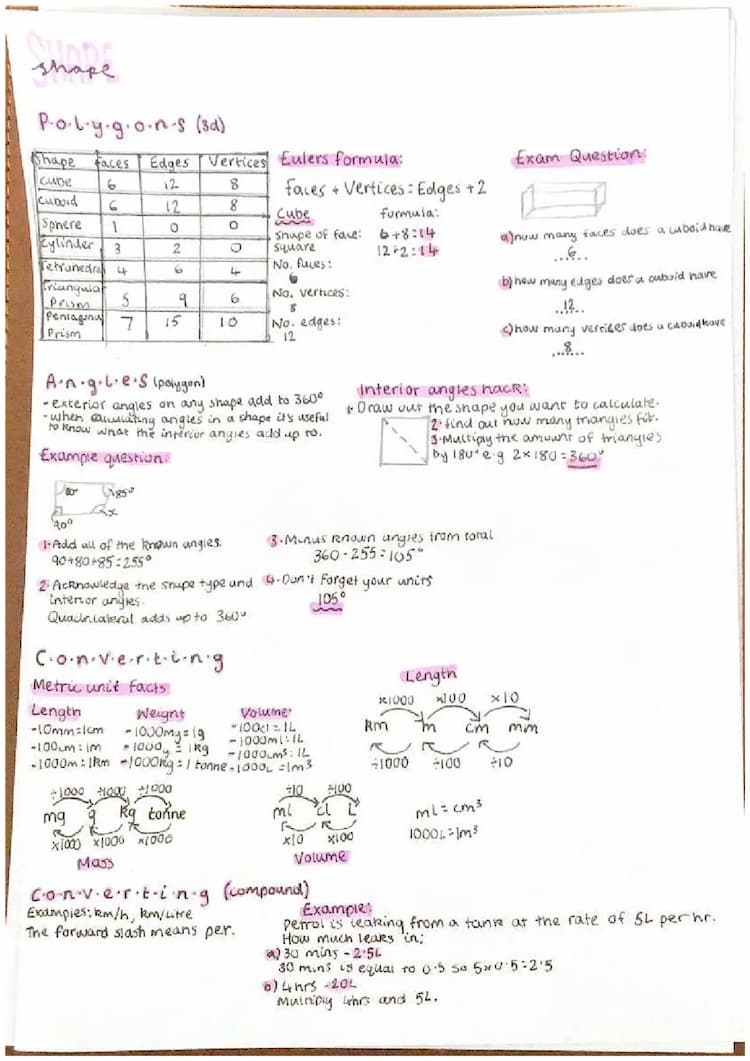 SHAPE
shape
P.o.l.y.g.o.n.s (3d)
Shape faces Edges Vertices
Cube 6 12 8
Cuboid 6 12 8
Sphere 1 0 0
Cylinder 3 2 0
Tetrahedral 4 6 4
Triangular Prism 5 9 6
Pentagonal Prism 7 15 10
Eulers formula:
Faces + Vertices = Edges + 2
Cube
Shape of face:
square
No. faces:
6
No. vertices:
8
No. edges:
12
formula:
6+8=14
12+2=14
Exam Question:
a) how many faces does a cuboid have
...6...
b) how many edges does a cuboid have
...12...
c) how many vertices does a cuboid have
...8...
A.n.g.l.e.s (polygon)
- exterior angles on any shape add to 360°
- when calculating angles in a shape it's useful
to know what the interior angles add up to.
Interior angles hack:
1. Draw out the shape you want to calculate.
2. find out how many triangles fit.
3. Multiply the amount of triangles
by 180° e.g 2×180=360°
Example question:
80° 85°
90° x
1. Add all of the known angles.
90+80+85=255°
2. Acknowledge the shape type and
interior angles.
Quadrilateral adds up to 360°
3. Minus known angles from total
360-255=105°
4. Don't forget your units
105°
C.o.n.v.e.r.t.i.n.g
Metric unit facts
Length
-10mm=1cm
-100cm=1m
-1000m=1km
Weight
-1000mg=1g
-1000g=1kg
-1000kg=1 tonne
Volume:
-100cl=1L
-1000ml=1L
-1000cm³=1L
-1000L=1m³
Length
×1000 ×100 ×10
km m cm mm
÷1000 ÷100 ÷10
÷1000 ÷1000 ÷1000
mg g kg tonne
×1000 ×1000 ×1000
Mass
÷10 ÷100
ml cl L
×10 ×100
Volume
ml=cm³
1000L=1m³
C.o.n.v.e.r.t.i.n.g (compound)
Examples: km/h, km/Litre
The forward slash means per.
Example:
Petrol is leaking from a tank at the rate of 5L per hr.
How much leaks in;
a) 30 mins - 2.5L
30 mins is equal to 0.5 so 5×0.5=2.5
b) 4hrs -20L
Multiply 4hrs and 5L.